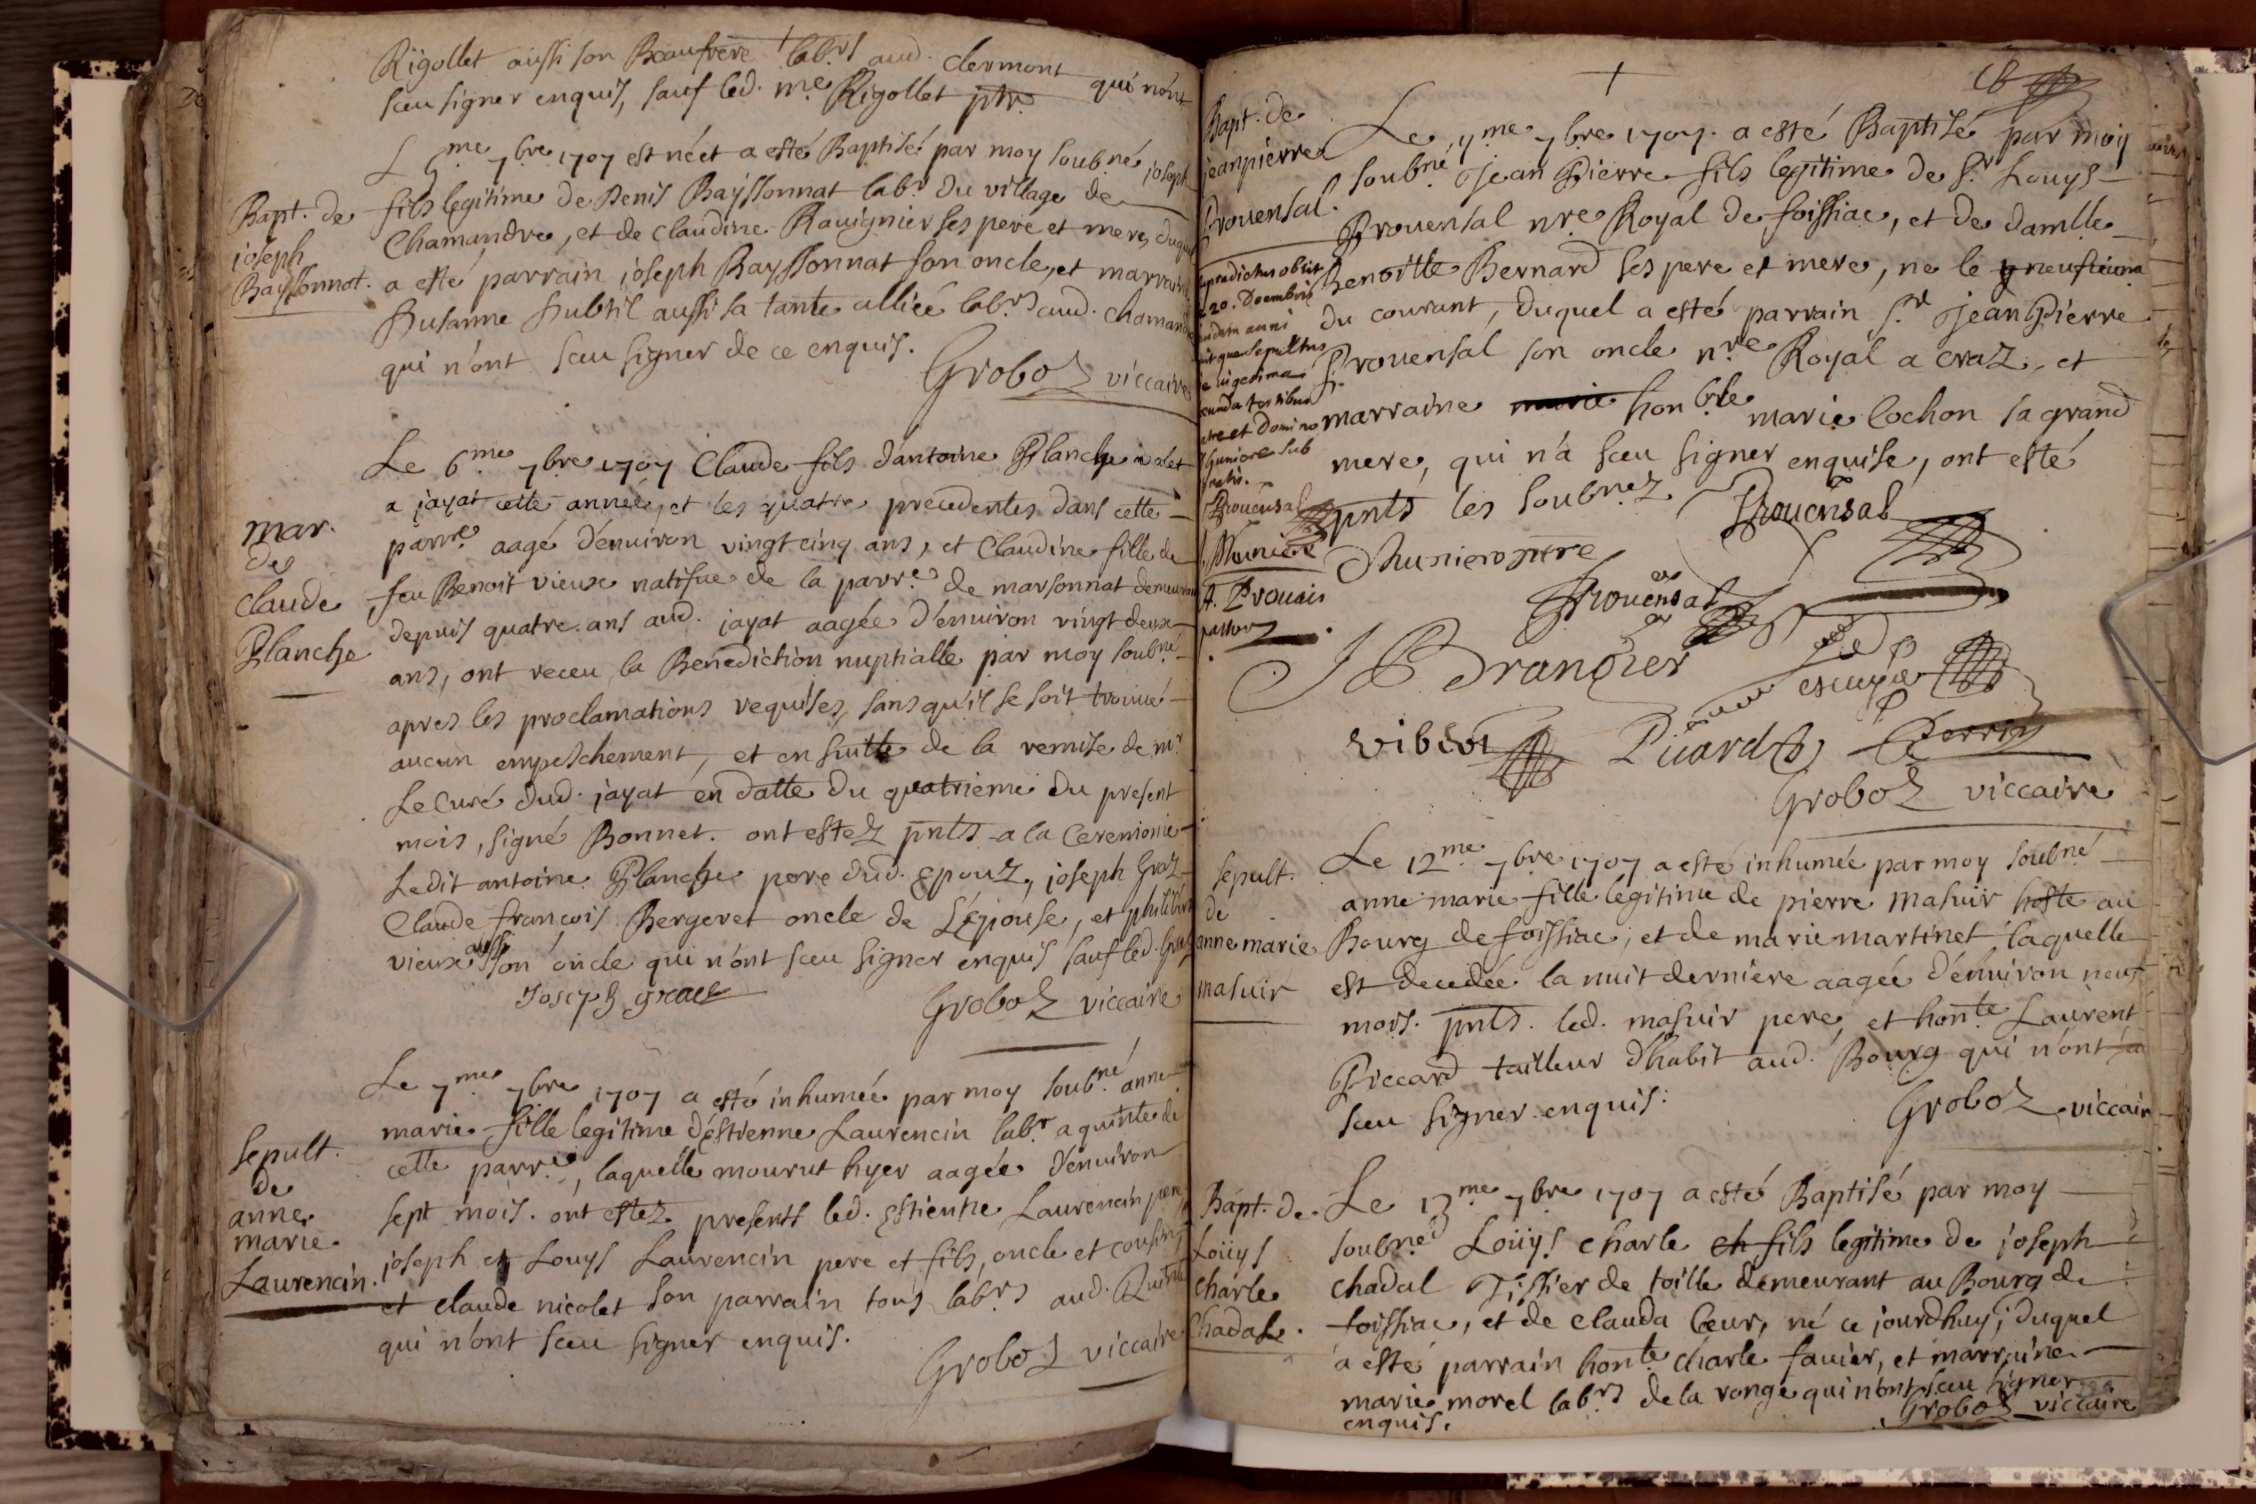 Rigollet aussi son Beaufrere lab.rs aud. clermont qui n'ont
sceu signer enquis, sauf led. m.e Rigollet ptre.
Bapt. de
joseph
Bayssonnat.
Le 5me 7bre 1707 est né et a esté Baptisé par moy soub.né joseph
fils legitime de Denis Bayssonnat lab.r du village de
Chamandre, et de claudine Rauignier ses pere et mere, duquel
a esté parrain joseph Bayssonnat son oncle, et marraine
Susanne Subtil aussi sa tante alliée lab.rs aud. chamandre
qui n'ont sceu signer de ce enquis.
Groboz viccaire
mar.
de
claude
Planche
Le 6me 7bre 1707 Claude fils d'antoine Planche valet
a jayat cette année, et les quatre precedentes dans cette
parr.e aagé d'enuiron vingt cinq ans, et Claudine fille de
feu Benoit vieux natifue de la parr.e de marsonnat demeurant
depuis quatre ans aud. jayat aagée d'enuiron vingt deux
ans, ont receu la Benediction nuptialle par moy soub.né
apres les proclamations requises, sans qu'il se soit trouué
aucun empeschement, et en suitte de la remise de m.r
Le Curé dud. jayat en datte du quatrieme du present
mois, signé Bonnet. ont estez pnts a la Ceremonie
Ledit antoine Planche pere dud. Epoux, joseph Graz
Claude françois Bergeret oncle de L'Epouse, et philibert
vieux aussi son oncle qui n'ont sceu signer enquis sauf led. Graz
Joseph graz
Groboz viccaire
Sepult.
de
anne
marie
Laurencin.
Le 7me 7bre 1707 a esté inhumée par moy soub.né anne
marie fille legitime d'estienne Laurencin lab.r a quinte de
cette parr.e, laquelle mourut hyer aagée d'enuiron
sept mois. ont estez presents led. Estienne Laurencin pere,
joseph et Louys Laurencin pere et fils, oncle et cousin,
et claude nicolet son parrain tous lab.rs aud. Quinte
qui n'ont sceu signer enquis.
Groboz viccaire
Bapt. de
jeanpierre
Prouensal.
supradictus obiit
20. Decembris
eiusdem anni
sepultus
vigesima
secunda testibus
patre et Domino
thuniore sub
signatis.
Prouensal
Thuniere
pastor
Le 9me 7bre 1707. a esté Baptisé par moy
soub.né Jean Pierre fils legitime de s.r Louys
Prouensal n.re Royal de foissiac, et de damlle
Benoitte Bernard ses pere et mere, ne le neufuieme
du courant, duquel a esté parrain s.r Jean Pierre
Prouensal son oncle n.re Royal a craz, et
marraine marie hon.ble marie Cochon sa grand
mere, qui n'a sceu signer enquise, ont esté
pnts les soubnez
Prouensal
Thuniere ptre
Prouensal
J B Brangier
vibert
Picard
Perrin
Groboz viccaire
Sepult.
de
anne marie
masuir
Le 12me 7bre 1707 a esté inhumée par moy soub.né
anne marie fille legitime de pierre masuir hoste au
Bourg de foissiac, et de marie martinet laquelle
est decedée la nuit derniere aagée d'enuiron neuf
mois. pnts. led. masuir pere, et hon.te Laurent
Piccard tailleur d'habit aud. Bourg qui n'ont
sceu signer enquis.
Groboz viccaire
Bapt. de
Loüys
charle
Chadal.
Le 13me 7bre 1707 a esté Baptisé par moy
soub.né Loüys charle ch fils legitime de joseph
chadal Tissier de toille demeurant au Bourg de
foissiac, et de clauda Cœur, né ce jourdhuy, duquel
a esté parrain hon.te charle fauier, et marraine
marie morel lab.rs de la ronge qui n'ont sceu signer
enquis.
Groboz viccaire